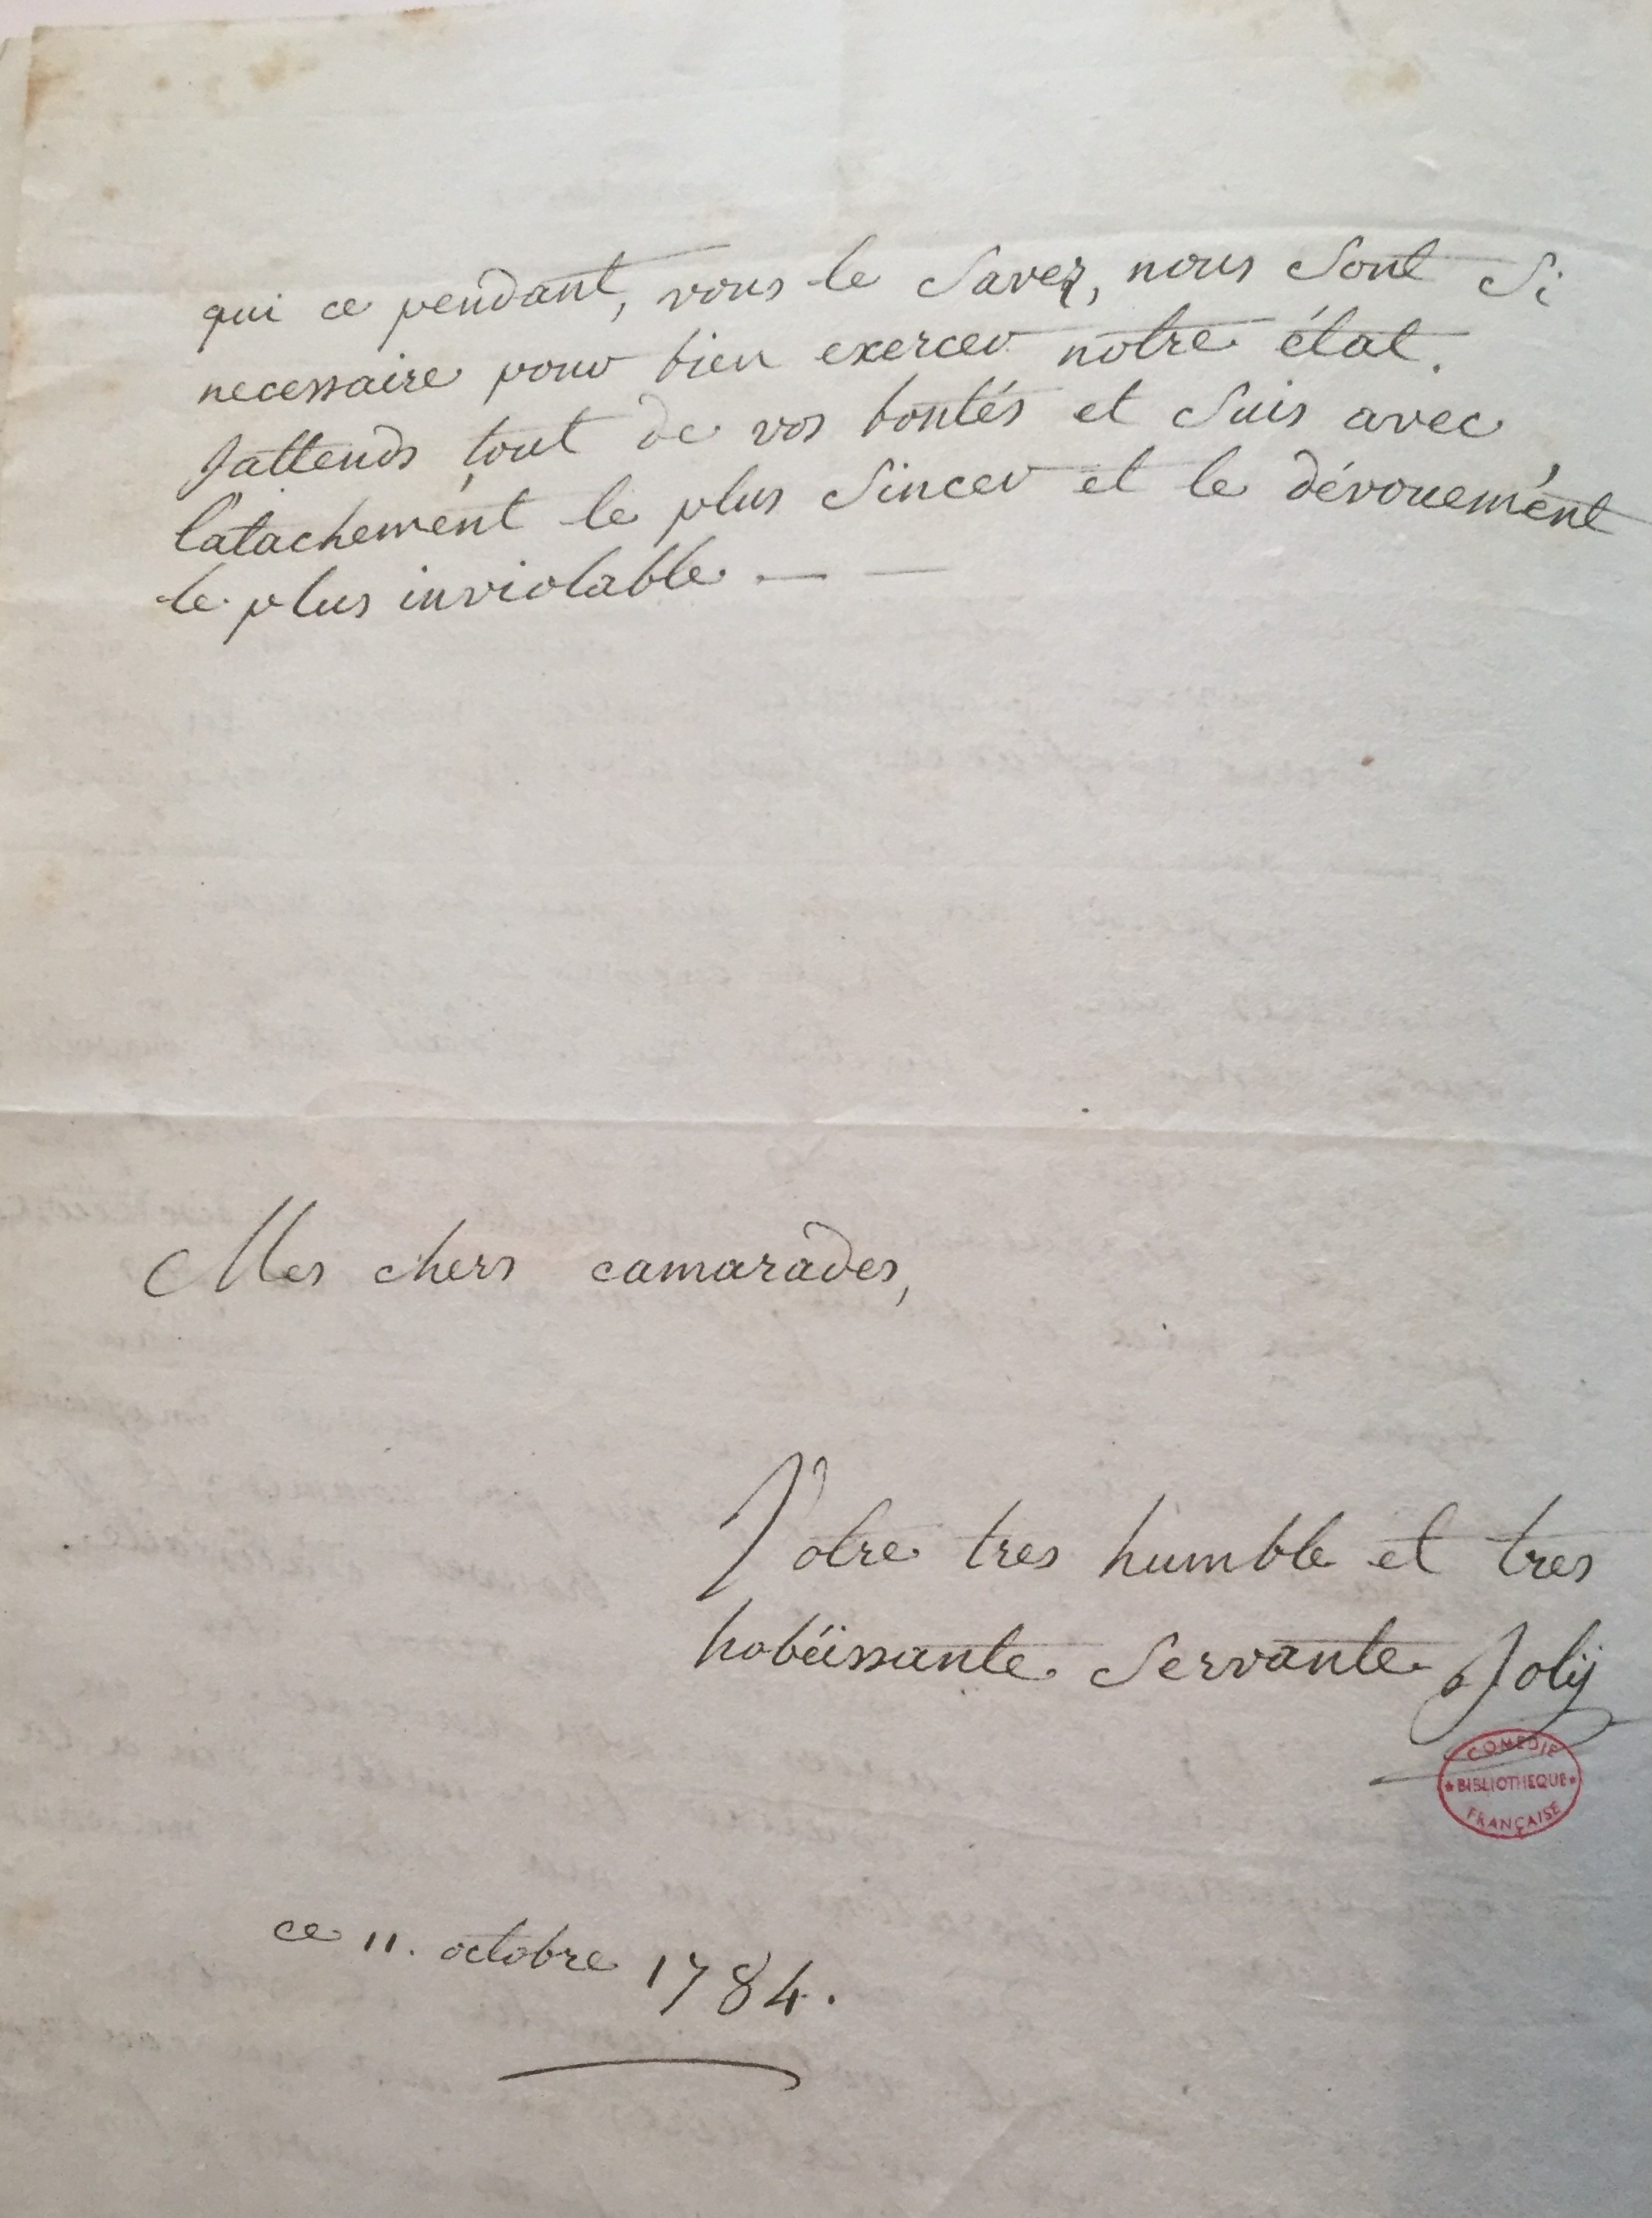 qui ce pendant, vous le savez, nous sont si
necessaire pour bien exercer notre état.
J'attends tout de vos bontés et suis avec
l'atachement le plus sincer et le dévouement
le plus inviolable. — —
Mes chers camarades,
Votre tres humble et tres
hobéissante servante Joly
COMEDIE
★BIBLIOTHEQUE★
FRANÇAISE
ce 11. octobre 1784.